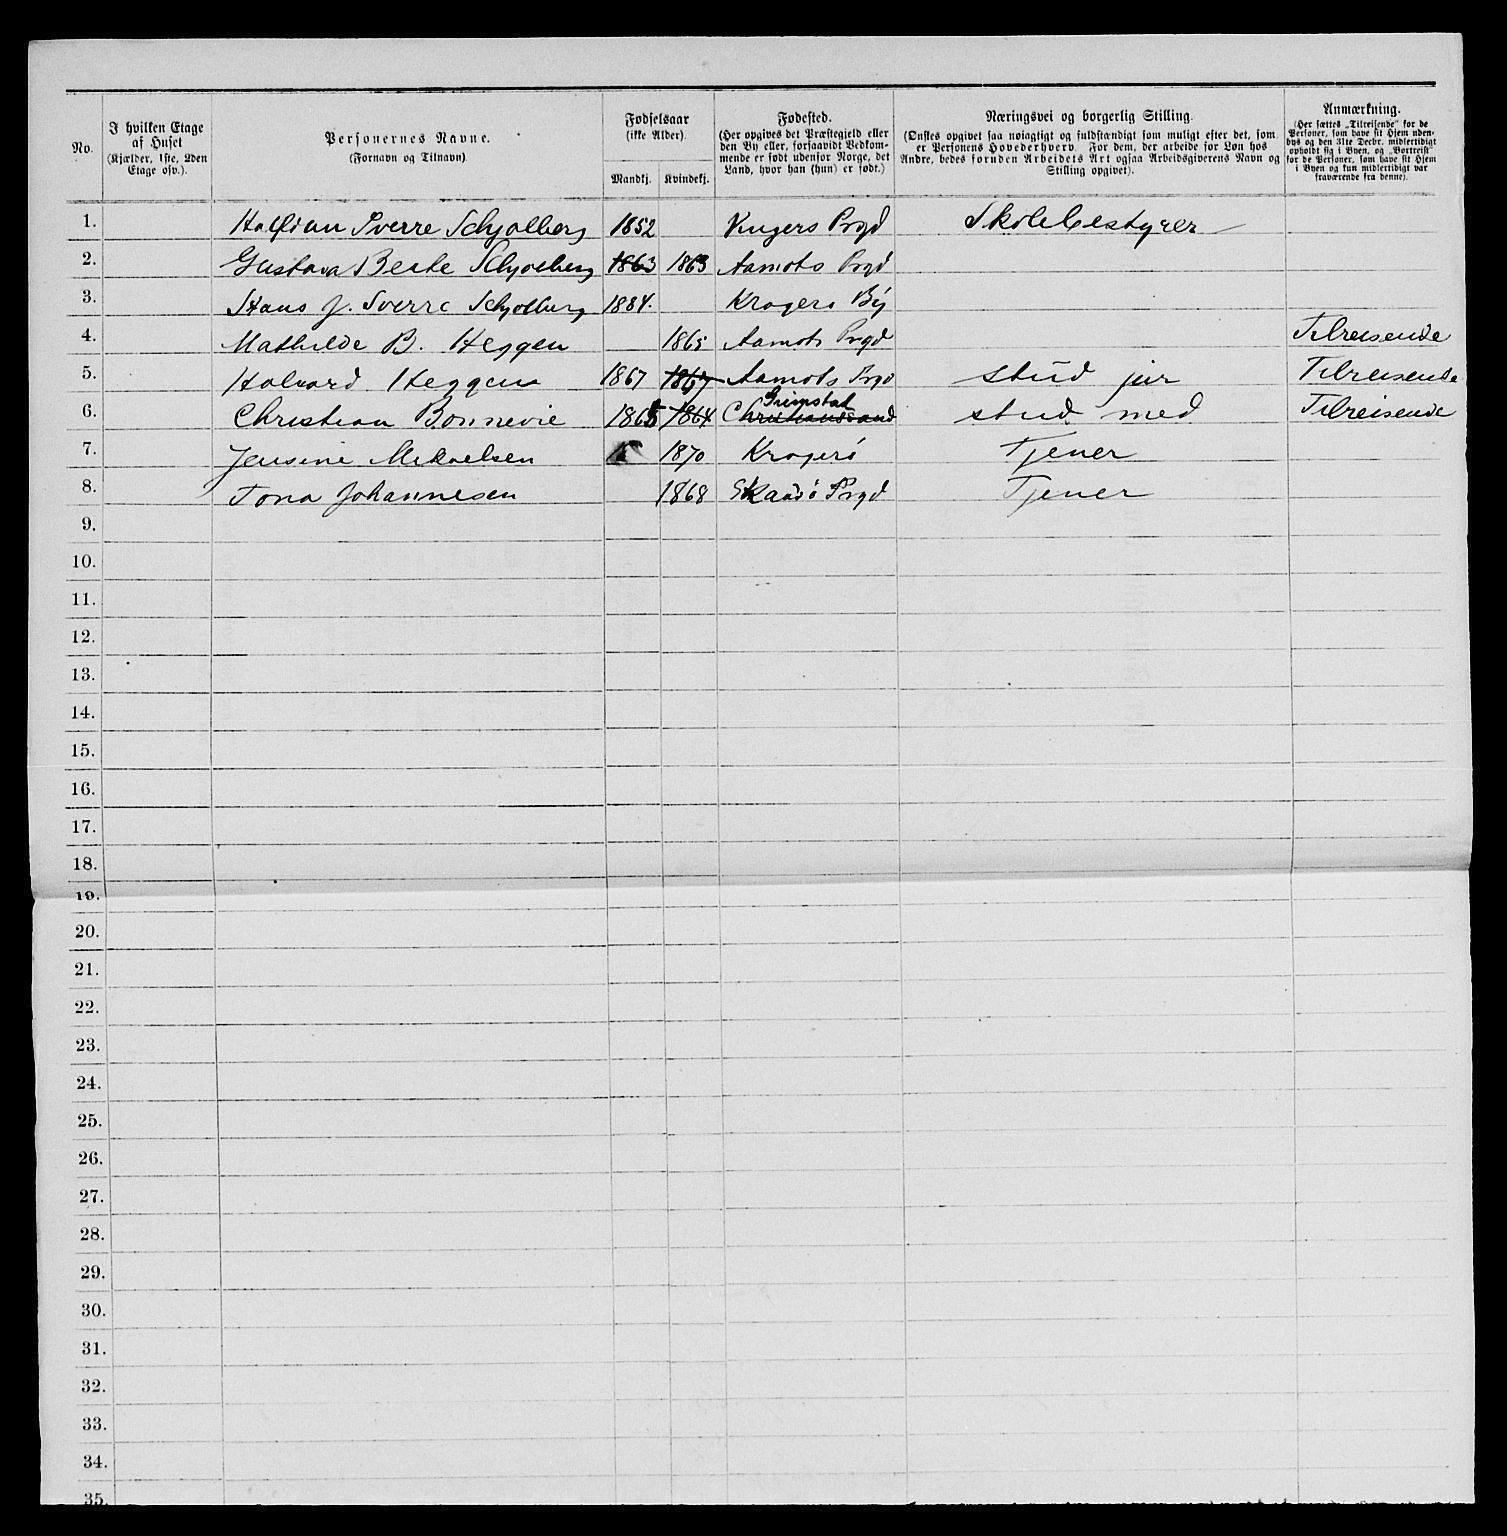 No. I hvilken Etage af Huset (Kjælder, 1ste, 2den Etage osv.). Personernes Navne. (Fornavn og Tilnavn) Fødselsaar (ikke Alder). Mandkj. Kvindekj. Fødested. (Her opgives det Præstegjeld eller den By eller, forsaavidt Vedkommende er født udenfor Norge, det Land, hvor han (hun) er født.) Næringsvei og borgerlig Stilling. (Ønskes opgivet saa nøiagtigt og fuldstændigt som muligt efter det, som er Personens Hovederhverv. For dem, der arbeide for Løn hos Andre, bedes foruden Arbeidets Art ogsaa Arbeidsgiverens Navn og Stilling opgivet). Anmærkning. (Her sættes „Tilreisende" for de Personer, som have sit Hjem udenbys og den 31te Decbr. midlertidigt opholdt sig i Byen, og „Bortreist" for de Personer, som have sit Hjem i Byen og kun midlertidigt var fraværende fra denne).
1. Halfdan Sverre Schjølberg 1852 Prgd Skolebestyrer
2. Gustava Beate Schjølberg 1863 1863 Aamots Prgd
3. Hans J. Sverre Schjølberg 1884. Kragerø By
4. Mathilde B. Heggen 1865 Aamots Prgd Tilreisende
5. Halvard Heggen 1867 1867 Aamots Prgd stud jur Tilreisende
6. Christian Bonnevie 1865 1864 Christianssand Grimstad stud med Tilreisende
7. Jensine Mikaelsen 1870 Kragerø Tjener
8. Tona Johannesen 1868 Skaadø Prgd Tjener
9.
10.
11.
12.
13.
14.
15.
16.
17.
18.
19.
20.
21.
22.
23.
24.
25.
26.
27.
28.
29.
30.
31.
32.
33.
34.
35.